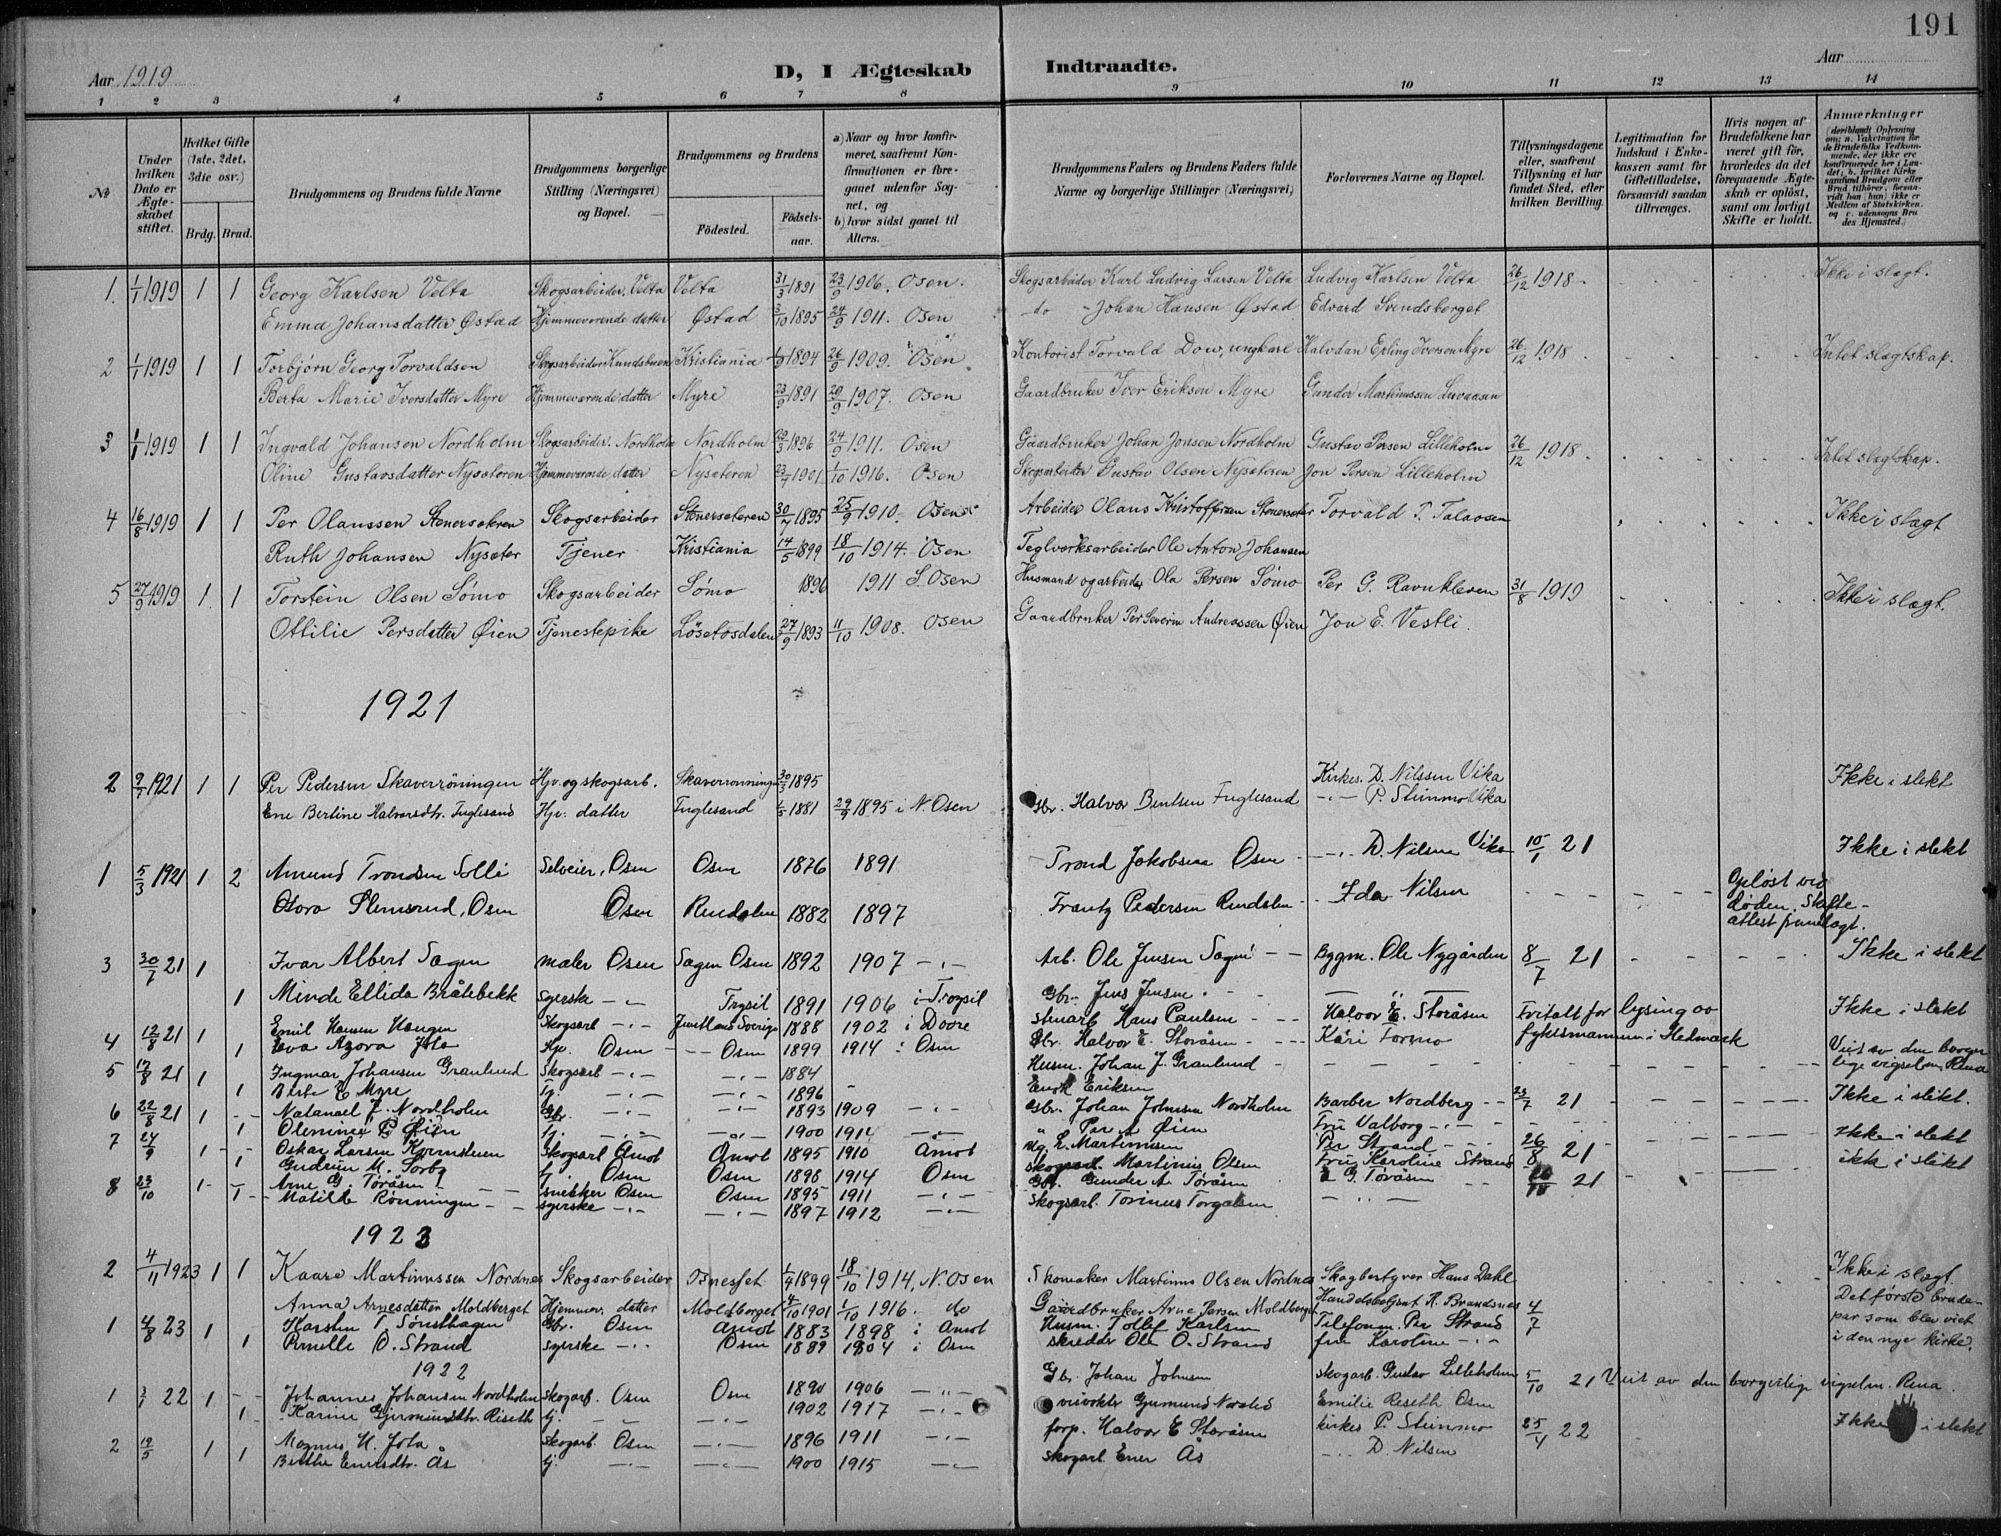 191
Aar 1919
D, I Ægteskab Indtraadte.
Aar
1 2 3 4 5 6 7 8 9 10 11 12 13 14
No
Under hvilken Dato er Ægteskabet stiftet.
Hvilket Gifte (1ste, 2det, 3die osv.)
Brdg. Brud.
Brudgommens og Brudens fulde Navne
Brudgommens borgerlige Stilling (Næringsvei) og Bopæl.
Brudgommens og Brudens
Födested. Födsels-aar.
a) Naar og hvor konfirmeret, saafremt Konfirmationen er foregaaet udenfor Sognet, og
b) hvor sidst gaaet til Alters.
Brudgommens Faders og Brudens Faders fulde Navne og borgerlige Stillinger (Næringsvei)
Forlovernes Navne og Bopæl.
Tillysningsdagene eller, saafremt Tillysning ei har fundet Sted, efter hvilken Bevilling.
Legitimation for Indskud i Enkekassen samt for Giftetilladelse, forsaavidt saadan tiltrænges.
Hvis nogen af Brudefolkene har været gift för, hvorledes da det foregaaende Ægteskab er oplöst, samt om lovligt Skifte er holdt.
Anmærkninger
(deriblandt Oplysning om: a. Vaksination for de Brudefolks Vedkommende, der ikke ere konfirmerede her i Landet; b. hvilket Kirkesamfund Brudgom eller Brud tilhörer, forsaavidt han (hun) ikke er Medlem af Statskirken, og c. udensogns Brudes Hjemsted.)
1. 1/1 1919 1 1 Georg Karlsen Velta Skogsarbeider. Velta Velta 31/3 1891 23/9 1906. Osen. Skogsarbeider Karl Ludvig Larsen Velta Ludvig Karlsen Velta 26/12 1918 Ikke i slagt.
Emma Johansdatter Østad Hjemmeværende datter Østad 3/10 1895 24/9 1911. Osen do - Johan Hansen Østad Edvard Svendsberget
2 1/1 1919 1 1 Torbjørn Georg Torvaldsen Skogsarbeider Kristiania 1894 26/9 1909. Osen Kontorist Torvald Dow, ungkarl Halvdan Erling Iversen Myre 26/12 1918 Intet slagtskap.
Berta Marie Iversdatter Myre Hjemmeværende datter Myre 23/9 1891 29/9 1907. Osen Gaardbruker Iver Eriksen Myre Gunder Martinussen
3 1/1 1919 1 1 Ingvald Johansen Nordholm Skogsarbeider. Nordholm Nordholm 1896 24/9 1911. Osen Gaardbruker Johan Jonsen Nordholm Gustav Persen Lilleholm 26/12 1918 Intet slagtskap.
Oline Gustavsdatter Nysæteren Hjemmeværende datter Nysæteren 1901 1/10 1916. Osen Skogsarbeider Gustav Olsen Nysæteren Jon Persen Lilleholm
4 16/8 1919 1 1 Per Olaussen Stenersæteren Skogsarbeider Stenersæteren 30/7 1895 25/9 1910. Osen Arbeider Olaus Kristoffersen Stenersæter Torvald T. Talaosen Ikke i slagt
Ruth Johansen Nysæter Tjener Kristiania 14/5 1899 18/10 1914. Osen Teglværksarbeider Ole Anton Johansen
5 27/9 1919 1. 1 Torstein Olsen Sömo Skogsarbeider Sömo 1896 1911 S. Osen Husmand og arbeider Ola Persen Sömo Per G. Ravnkleven 31/8 1919 Ikke i slægt.
Ottilie Persdatter Øien Tjenestepike Lösetosdalen 27/9 1893 11/10 1908. Osen Gaardbruker Per Severin Andreassen Øien Jon E. Vestli.
1921
2 9/7 1921 1 1 Per Pedersen Skaverröningen Hjv. og skogsarb. Skaverronningen 30/3 1895 Kirkes. D. Nilssen Vika Ikke i slekt
Ene Bertine Halvorsdtr. Fuglesand Hjv. datter Fuglesand 1/5 1881 29/9 1895 i N. Osen Gbr. Halvor Bentsen Fuglesand - " - P. Steinmo Vika
1 5/3 1921 1 2 Amund Trondsen Solli Selveier, Osen Osen 1876 1891 Trond Jakobsen Osen - " - D. Nilsen Vika 10/1 21 Ikke i slekt
Osen Osen Rendalen 1882 1897 Frantz Pedersen Rendalen Ida Nilsen Opløst ved døden. Skifteattest fremlagt.
3 30/7 21 1 Ivar Albert Sagen maler Osen Sagen Osen 1892 1907 - " - Arb. Ole Jensen Sagen Bygm. Ole Nygården 8/7 21 Ikke i slekt
1 Minda Ellida Bråtebekk syerske - " - Trysil 1891 1906 i Trysil Gbr. Jens Jensen - " -
4 12/8 21 1 Emil Hansen Haugen Skogsarb - " - Jemtland Sverige 1888 1902 i Dovre Hans Paulsen Halvor E. Storåsen Fritatt for lysing av Ikke i slekt
1 Eva Azora Jota Hj. Osen Osen 1899 1914 i Osen Gbr. Halvor E. Storåsen Kåri Tormo fylkesmannen i Hedmark
5 17/8 21 1 Ingmar Johansen Granlund Skogsarb - " - - " - 1884 Husm. Johan J. Granlund Viet av den borgerlige vigselsm. Rena
1 Berte E Myre Tj. - " - - " - 1896 Enok Eriksen
6 22/8 21 1 Natanael J. Nordholm Gbr. - " - - " - 1893 1909 - " - Gbr. Johan Johnsen Nordholm Barber Nordberg 23/7 21 Ikke i slekt.
1 Olemine P. Øien tj. - " - - " - 1900 1914 " Per A Øien Fru Valborg - " -
7 24/9 1 Oskar Larsen Skogsarb Åmot Åmot 1895 1910 Åmot L. Martinsen Per Strand 26/8 21 Ikke i slekt
1 Gudrun M. Sorby tj. Osen Osen 1898 1914 Osen Skogsarb. Martinius Olsen fru Karoline Strand ikke i slekt
8 23/10 1 Arne G. Toråsen snekker Osen Osen 1895 1911 - " - Gbr. Gunder A. Toråsen G. Toråsen 21
1 Matilde Rönningen syerske - " - - " - 1897 1912 - " - Skogsarb. Torinus Torgalsen
1923
2 4/11 1923 1 1 Kaare Martinussen Nordnes Skogsarbeider Osneset 1/4 1899 18/10 1914. N. Osen Skomaker Martinus Olsen Nordnes Skogbestyrer Hans Dahl Ikke i slagt.
Anna Arnesdatter Moldberget Hjemmev. datter Moldberget 4/10 1901 1/10 1916. do Gaardbruker Arne Persen Moldberget Handelsbetjent R. Brandsnes Det første brude-
1 4/8 23 1 Karsten T. Sönsthagen Gbr. Osen Åmot 1883 1898 i Åmot Husm. Tollef Karlsen Telefonm. Per Strand 4/7 par som blev viet
1 Pernelle O. Strand syerske - " - Osen 1889 1904 i Osen skredder Ole O. Strand fru Karoline - " - i den nye kirke.
1922
1 22 1 Johannes Johansen Nordholm Skogarb. Osen Osen 1890 1906 - " - Gbr. Johan Johnsen skogarb. Gustav Lilleholm 5/10 21 Viet av den borgerlige vigselsm. Rena
1 Karine Gjermundsdtr. Riseth tj. - " - - " - 1902 1917 - " - Gjermund Emilie Reseth Osen
2 19/5 1 Magnus H. Jota Skogarb. Osen - " - 1896 1911 - " - forp. Halvor E Storåsen kirkes P. Steinmo 25/4 22 Ikke i slekt
1 Berthe Enersdtr. Ås tj. - " - - " - 1900 1915 - " - skogarb Ener Ås - " - D. Nilsen